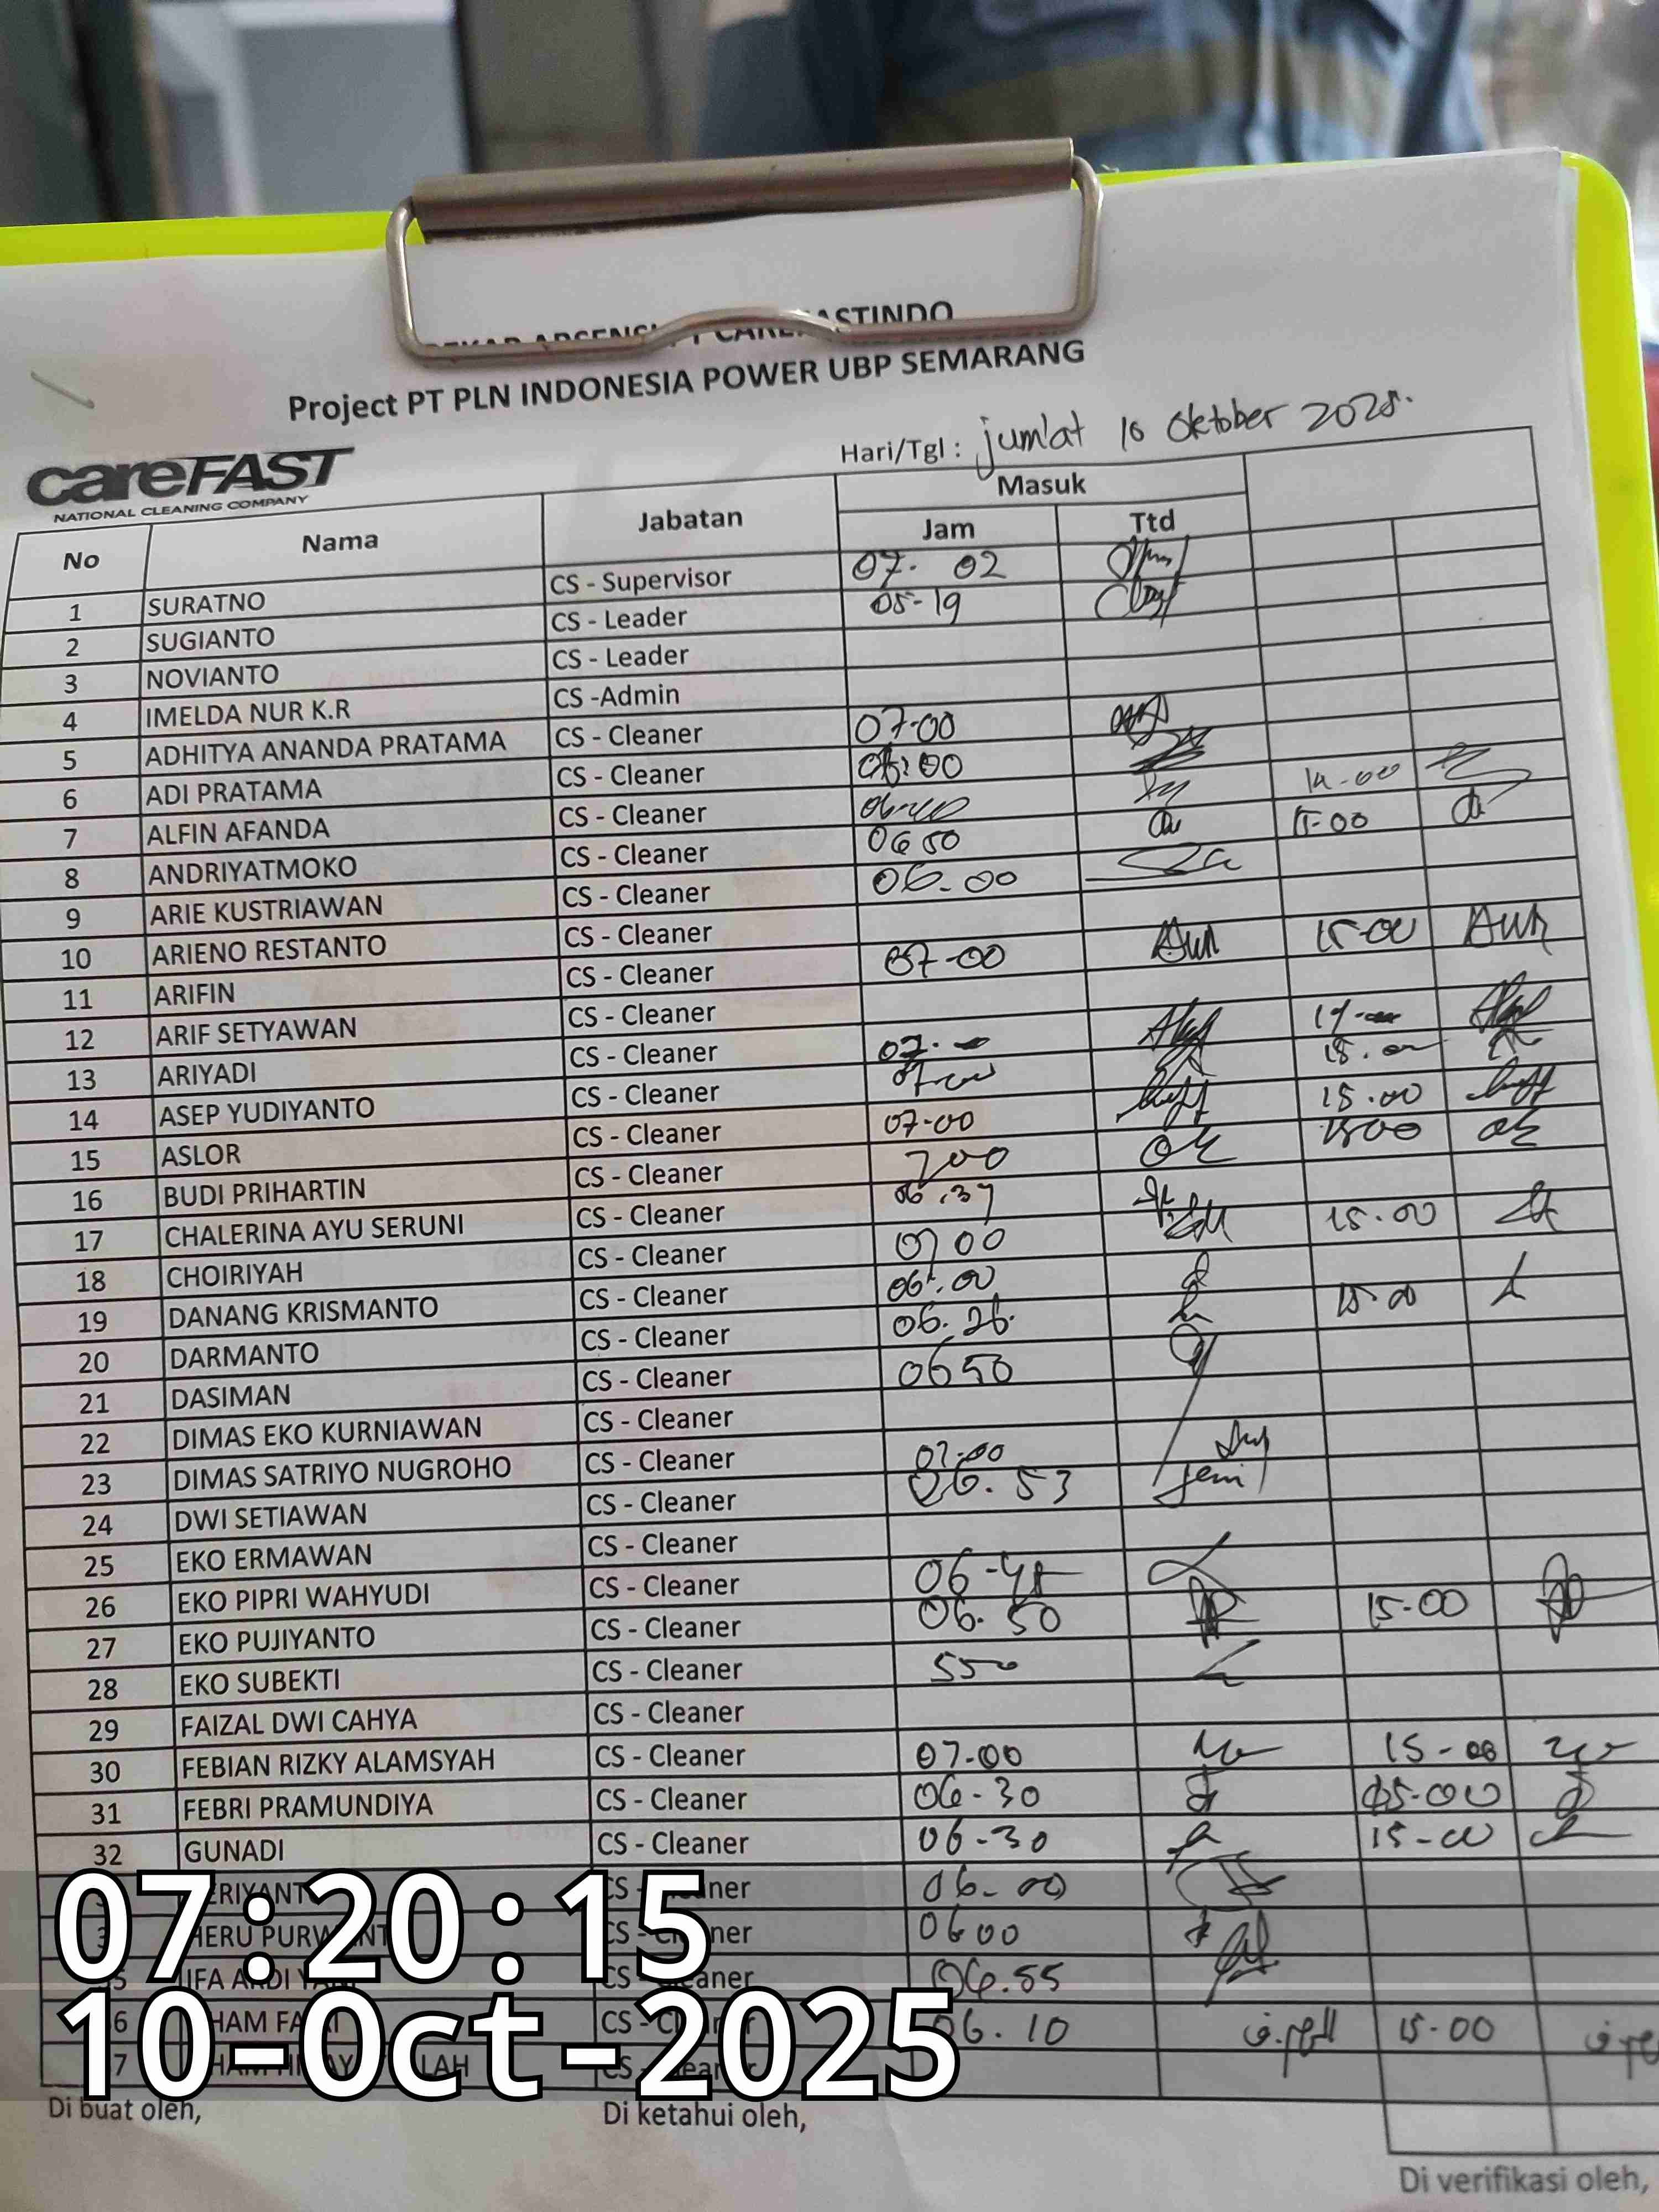 Project PT PLN INDONESIA POWER UBP SEMARANG
careFAST
NATIONAL CLEANING COMPANY
Hari/Tgl : jum'at 10 Oktober 2025.
No Nama Jabatan Masuk
Jam Ttd
1 SURATNO CS - Supervisor 07. 02
2 SUGIANTO CS - Leader 05-19
3 NOVIANTO CS - Leader
4 IMELDA NUR K.R CS -Admin
5 ADHITYA ANANDA PRATAMA CS - Cleaner 07-00
6 ADI PRATAMA CS - Cleaner
7 ALFIN AFANDA CS - Cleaner 06-40 14-00
8 ANDRIYATMOKO CS - Cleaner 06 50 15-00
9 ARIE KUSTRIAWAN CS - Cleaner 06.00
10 ARIENO RESTANTO CS - Cleaner
11 ARIFIN CS - Cleaner 07-00 15-00
12 ARIF SETYAWAN CS - Cleaner
13 ARIYADI CS - Cleaner
14 ASEP YUDIYANTO CS - Cleaner 07-00
15 ASLOR CS - Cleaner 07-00 15.00
16 BUDI PRIHARTIN CS - Cleaner 700 1500
17 CHALERINA AYU SERUNI CS - Cleaner 06.37
18 CHOIRIYAH CS - Cleaner 07 00 15.00
19 DANANG KRISMANTO CS - Cleaner 06.00
20 DARMANTO CS - Cleaner 06.26. 15.00
21 DASIMAN CS - Cleaner 0650
22 DIMAS EKO KURNIAWAN CS - Cleaner
23 DIMAS SATRIYO NUGROHO CS - Cleaner 07-00
24 DWI SETIAWAN CS - Cleaner 06.53
25 EKO ERMAWAN CS - Cleaner
26 EKO PIPRI WAHYUDI CS - Cleaner 06-45
27 EKO PUJIYANTO CS - Cleaner 06.50 15-00
28 EKO SUBEKTI CS - Cleaner 550
29 FAIZAL DWI CAHYA CS - Cleaner
30 FEBIAN RIZKY ALAMSYAH CS - Cleaner 07-00 15-00
31 FEBRI PRAMUNDIYA CS - Cleaner 06-30 15-00
32 GUNADI CS - Cleaner 06-30 15-00
06-00
HERU 0600
06.55
06.10 15-00
07:20:15
10-Oct-2025
Di buat oleh, Di ketahui oleh, Di verifikasi oleh,